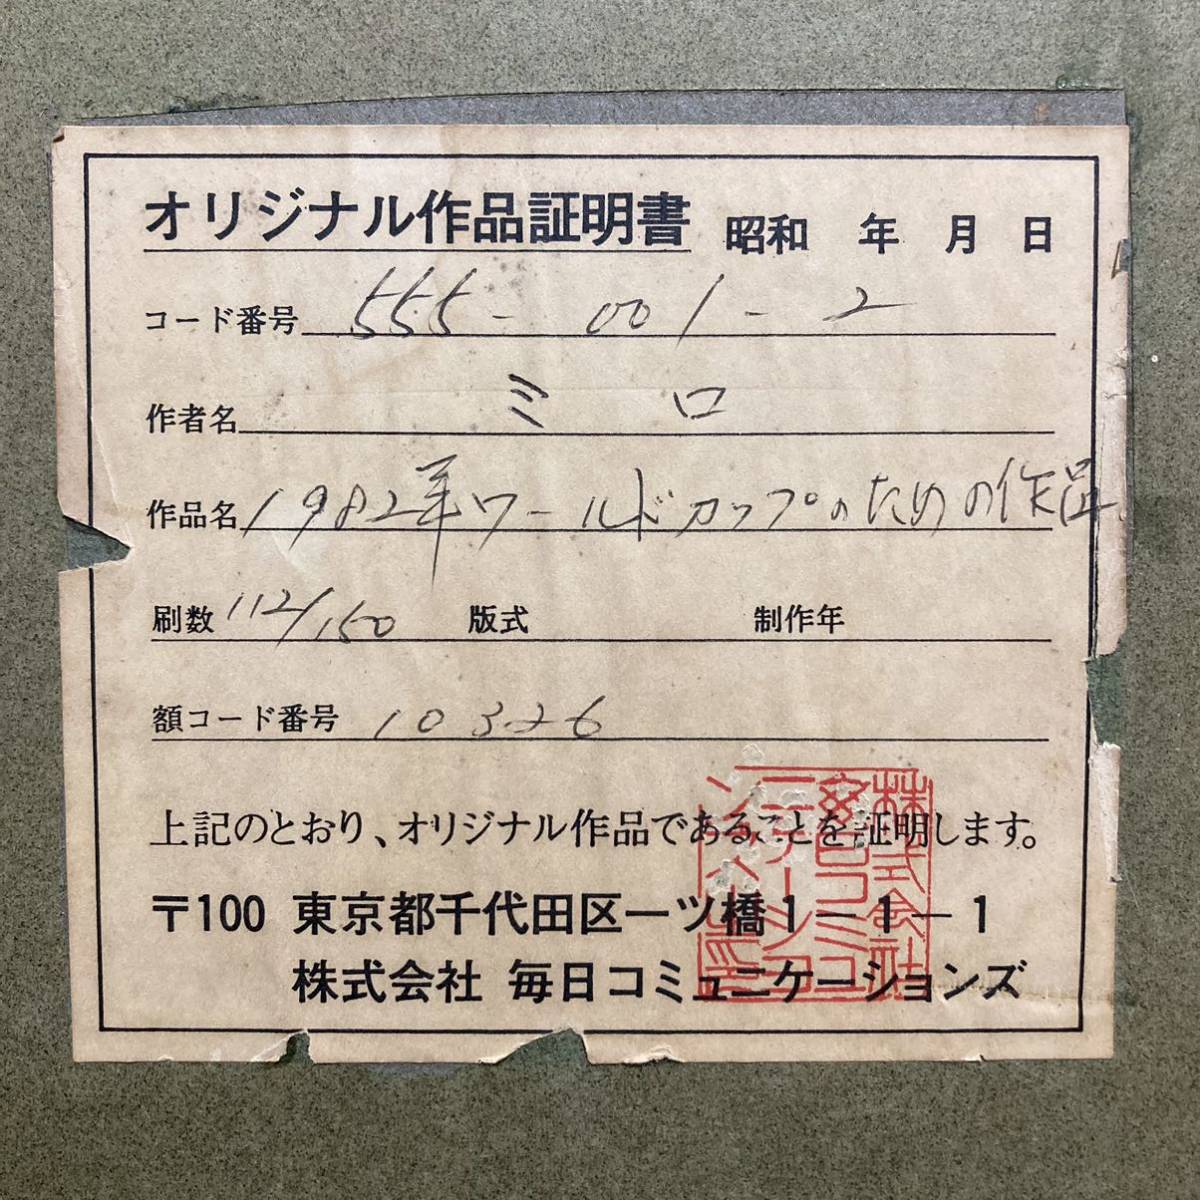 オリジナル作品証明書 昭和 年 月 日
コード番号 555-001-2
作者名 ミロ
作品名 1982年ワールドカップのための作品
刷数 112/150 版式 制作年
額コード番号 10326
上記のとおり、オリジナル作品であることを証明します。
〒100 東京都千代田区一ツ橋1-1-1
株式会社 毎日コミュニケーションズ
株式会社